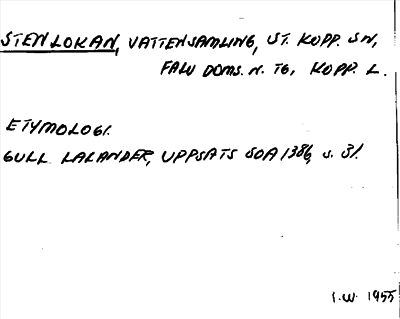 STENLOKAN, VATTENSAMLING, ST. KOPP. SN,
FALU DOMS. N. TG, KOPP. L.
ETYMOLOGI.
GULL LALANDER, UPPSATS SOA 1386, s. 31.
I.W. 1955